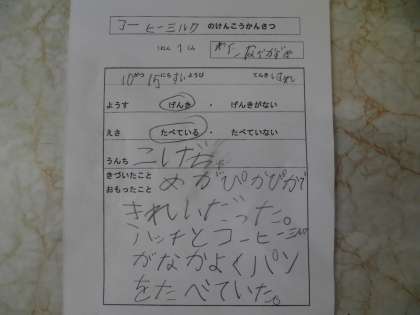 コーヒーミルク のけんこうかんさつ
1ねん 1くみ
10がつ 15にち すいようび てんき はれ
ようす げんき ・ げんきがない
えさ たべている ・ たべていない
うんち こいげちゃ
きづいたこと
おもったこと
めがぴかぴかで
きれいだった。
ハッチとコーヒーミルク
がなかよくパン
をたべていた。